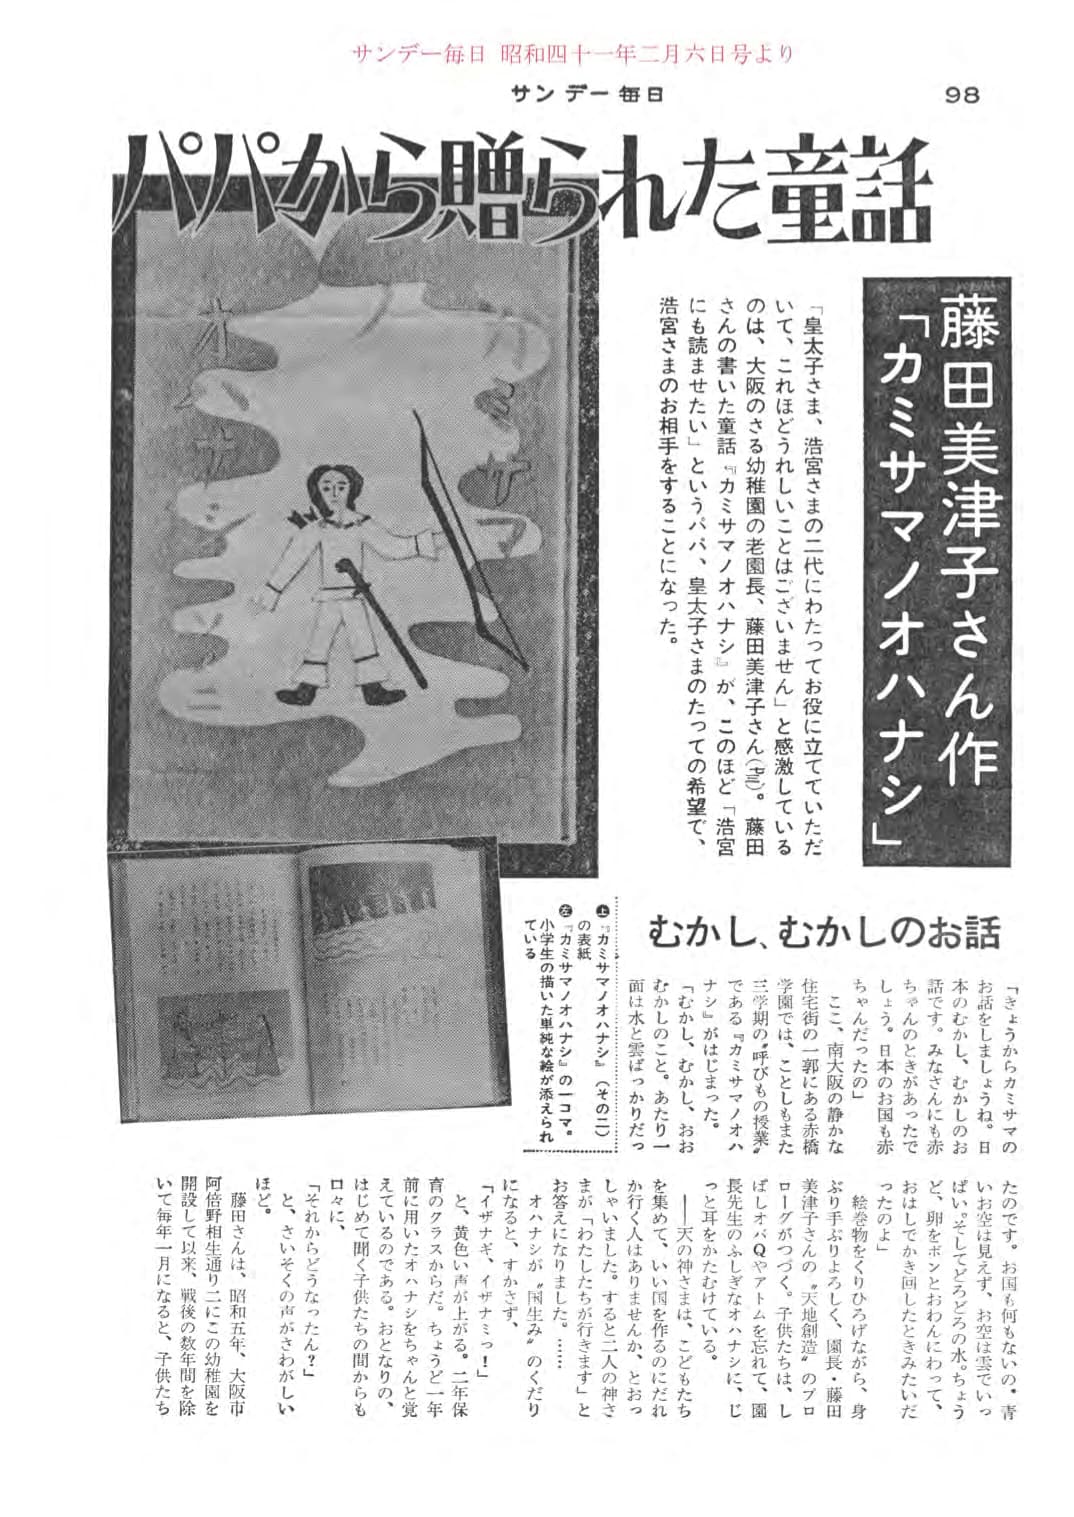 サンデー毎日 昭和四十一年二月六日号より
サンデー毎日
98
パパから贈られた童話
藤田美津子さん作
「カミサマノオハナシ」
「皇太子さま、浩宮さまの二代にわたってお役に立てていただ
いて、これほどうれしいことはございません」と感激している
のは、大阪のさる幼稚園の老園長、藤田美津子さん。藤田
さんの書いた童話『カミサマノオハナシ』が、このほど「浩宮
にも読ませたい」というパパ、皇太子さまのたっての希望で、
浩宮さまのお相手をすることになった。
カミサマノ
オハナシ
ソノ二
上『カミサマノオハナシ』（その二）
の表紙
左『カミサマノオハナシ』の一コマ。
小学生の描いた単純な絵が添えられ
ている
むかし、むかしのお話
「きょうからカミサマの
お話をしましょうね。日
本のむかし、むかしのお
話です。みなさんにも赤
ちゃんのときがあったで
しょう。日本のお国も赤
ちゃんだったの」
ここ、南大阪の静かな
住宅街の一郭にある赤橋
学園では、ことしもまた
三学期の〝呼びもの授業〟
である『カミサマノオハ
ナシ』がはじまった。
「むかし、むかし、おお
むかしのこと。あたり一
面は水と雲ばっかりだっ
たのです。お国も何もないの。青
いお空は見えず、お空は雲でいっ
ぱい。そしてどろどろの水。ちょう
ど、卵をポンとおわんにわって、
おはしでかき回したときみたいだ
ったのよ」
絵巻物をくりひろげながら、身
ぶり手ぶりよろしく、園長・藤田
美津子さんの〝天地創造〟のプロ
ローグがつづく。子供たちは、し
ばしオバＱやアトムを忘れて、園
長先生のふしぎなオハナシに、じ
っと耳をかたむけている。
――天の神さまは、こどもたち
を集めて、いい国を作るのにだれ
か行く人はありませんか、とおっ
しゃいました。すると二人の神さ
まが「わたしたちが行きます」と
お答えになりました。……
オハナシが〝国生み〟のくだり
になると、すかさず、
「イザナギ、イザナミっ！」
と、黄色い声が上がる。二年保
育のクラスからだ。ちょうど一年
前に用いたオハナシをちゃんと覚
えているのである。おとなりの、
はじめて聞く子供たちの間からも
口々に、
「それからどうなったん？」
と、さいそくの声がさわがしい
ほど。
藤田さんは、昭和五年、大阪市
阿倍野相生通り二にこの幼稚園を
開設して以来、戦後の数年間を除
いて毎年一月になると、子供たち